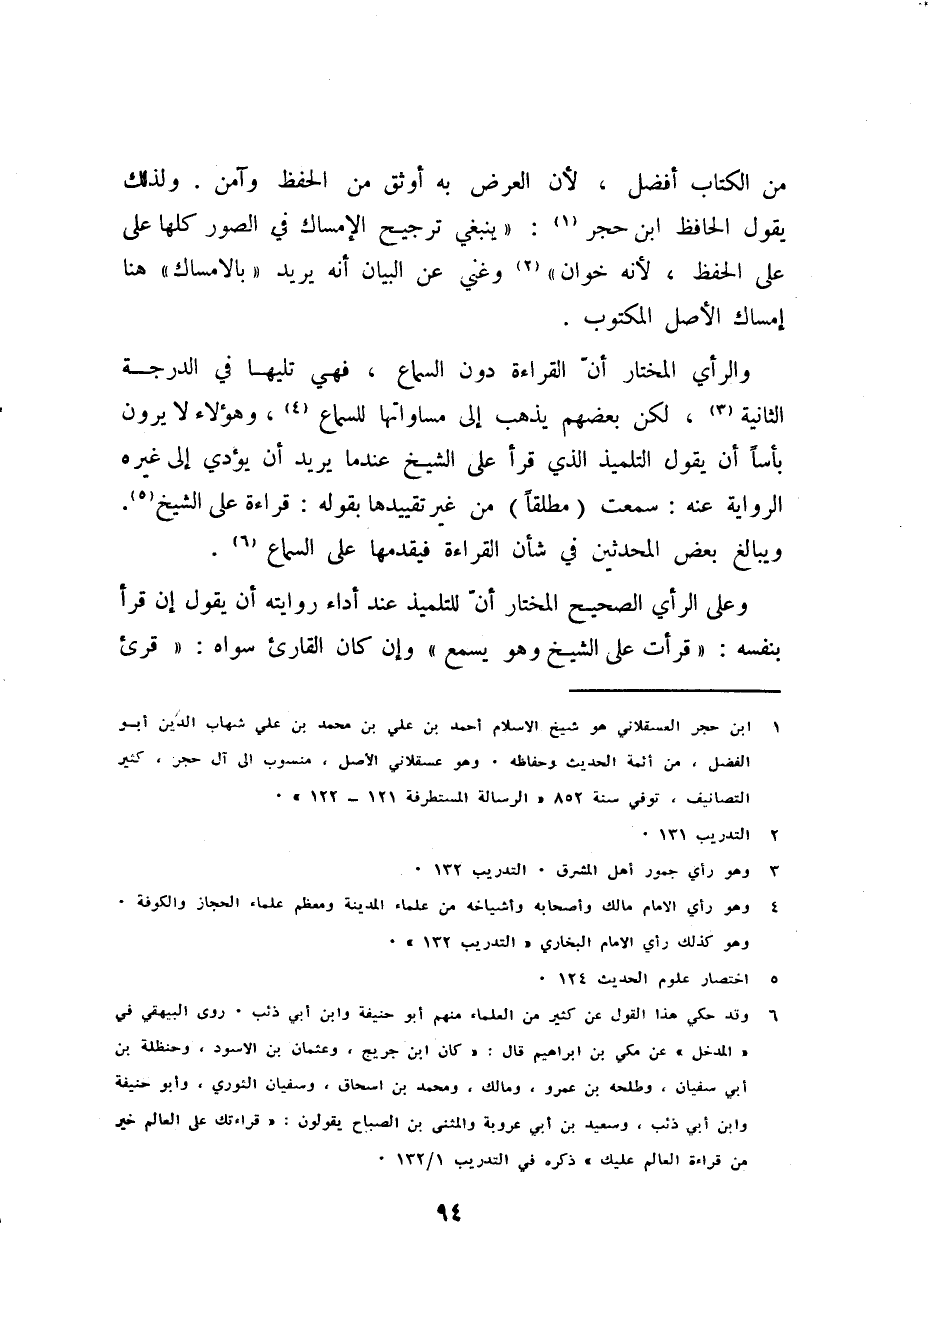 من الكتاب أفضل ، لأن العرض به أوثق من الحفظ وآمن . ولذلك
يقول الحافظ ابن حجر (١) : « ينبغي ترجيح الإمساك في الصور كلها على
على الحفظ ، لأنه خوان» (٢) وغني عن البيان أنه يريد «بالامساك» هنا
إمساك الأصل المكتوب .
والرأي المختار أنّ القراءة دون السماع ، فهي تليها في الدرجة
الثانية (٣) ، لكن بعضهم يذهب إلى مساواتها للسماع (٤) ، وهؤلاء لا يرون
بأساً أن يقول التلميذ الذي قرأ على الشيخ عندما يريد أن يؤدي إلى غيره
الرواية عنه : سمعت ( مطلقاً ) من غير تقييدها بقوله : قراءة على الشيخ(٥).
ويبالغ بعض المحدثين في شأن القراءة فيقدمها على السماع (٦) .
وعلى الرأي الصحيح المختار أنّ للتلميذ عند أداء روايته أن يقول إن قرأ
بنفسه : « قرأت على الشيخ وهو يسمع » وإن كان القارئ سواه : « قرئ
١ ابن حجر العسقلاني هو شيخ الاسلام أحمد بن علي بن محمد بن علي شهاب الدين أبو
الفضل ، من أئمة الحديث وحفاظه ٠ وهو عسقلاني الأصل ، منسوب الى آل حجر ، كثير
التصانيف ، توفي سنة ٨٥٢ « الرسالة المستطرفة ١٢١ – ١٢٢ » ٠
٢ التدريب ١٣١ ٠
٣ وهو رأي جمهور أهل المشرق ٠ التدريب ١٣٢ ٠
٤ وهو رأي الامام مالك وأصحابه وأشياخه من علماء المدينة ومعظم علماء الحجاز والكوفة ٠
وهو كذلك رأي الامام البخاري « التدريب ١٣٢ » ٠
٥ اختصار علوم الحديث ١٢٤ ٠
٦ وقد حكي هذا القول عن كثير من العلماء منهم أبو حنيفة وابن أبي ذئب ٠ روى البيهقي في
« المدخل » عن مكي بن ابراهيم قال : « كان ابن جريج ، وعثمان بن الاسود ، وحنظلة بن
أبي سفيان ، وطلحه بن عمرو ، ومالك ، ومحمد بن اسحاق ، وسفيان الثوري ، وأبو حنيفة
وابن أبي ذئب ، وسعيد بن أبي عروبة والمثنى بن الصباح يقولون : « قراءتك على العالم خير
من قراءة العالم عليك » ذكره في التدريب ١٣٢/١ ٠
٩٤